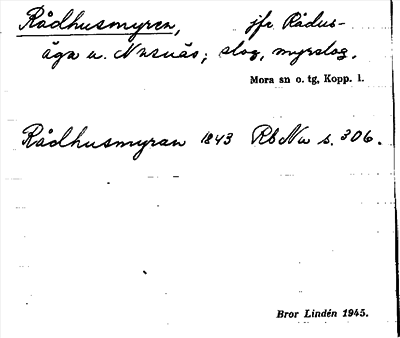 Rådhusmyren, jfr Rådus-
äga u. Nusnäs; slog, myrslog.
Mora sn o. tg, Kopp. l.
Rådhusmyran 1843 RbNu s. 306.
Bror Lindén 1945.